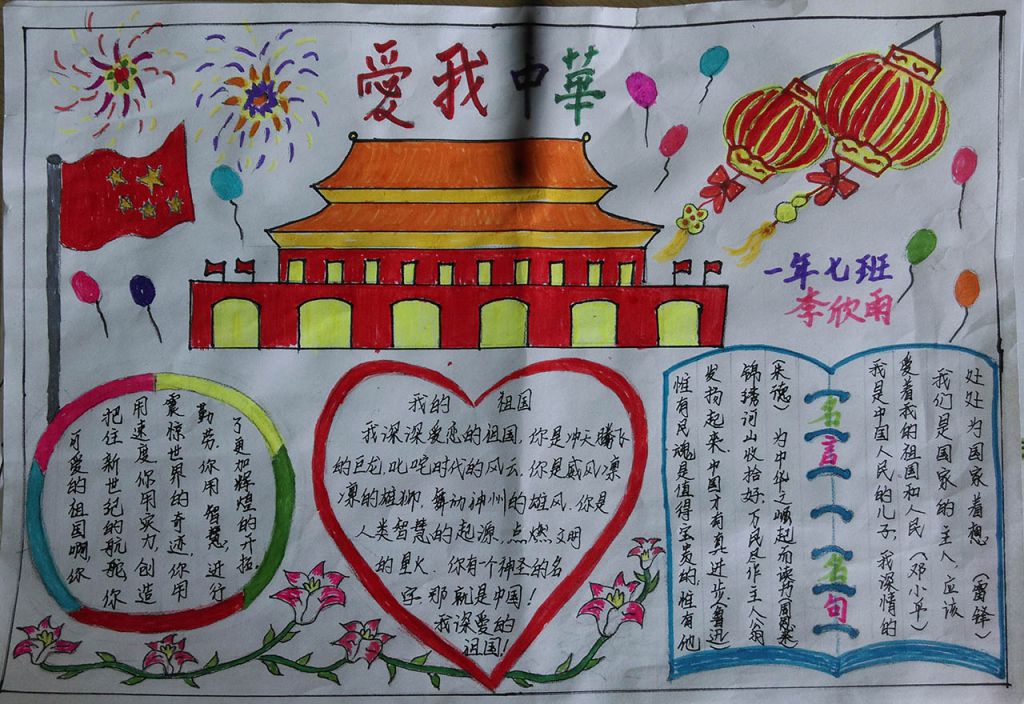 愛我中華
一年七班
李欣雨
可爱的祖国啊,你
把住新世纪的航舵,你
用速度,你用实力,创造
震惊世界的奇迹,你用
勤劳,你用智慧,进行
了更加辉煌的开拓。
我的 祖国
我深深爱恋的祖国.你是冲天腾飞
的巨龙,叱咤时代的风云,你是威风凛
凛的雄狮,舞动神州的雄风.你是
人类智慧的起源,点燃文明
的星火.你有个神圣的名
字,那就是中国!
我深爱的
祖国!
名言名句
惟有民魂是值得宝贵的,惟有他
发扬起来,中国才有真进步(鲁迅)
锦绣河山收拾好,万民尽作主人翁
(朱德) 为中华之崛起而读书(周恩来)
我是中国人民的儿子,我深情的
爱着我的祖国和人民(邓小平)
我们是国家的主人,应该
处处为国家着想(雷锋)